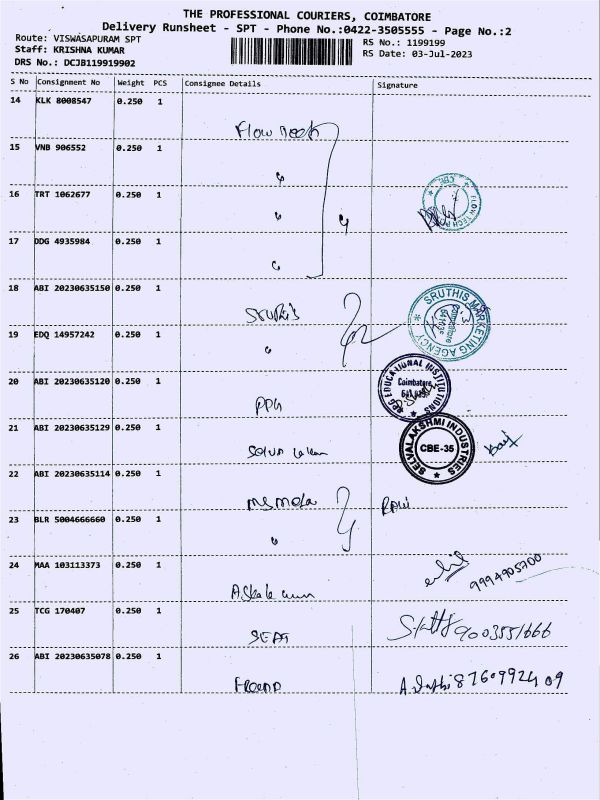 THE PROFESSIONAL COURIERS, COIMBATORE
Delivery Runsheet - SPT - Phone No.:0422-3505555 - Page No.:2
Route: VISWASAPURAM SPT
RS No.: 1199199
Staff: KRISHNA KUMAR
RS Date: 03-Jul-2023
DRS No.: DCJB119919902
S No Consignment No Weight PCS Consignee Details Signature
14 KLK 8008547 0.250 1
Flow Tech
15 VNB 906552 0.250 1
16 TRT 1062677 0.250 1
CBE FLOW TECH
17 DDG 4935984 0.250 1
18 ABI 20230635150 0.250 1
SRUTHIS MARKETING AGENCY
Coimbatore
19 EDQ 14957242 0.250 1
20 ABI 20230635120 0.250 1
PPG
PPG EDUCATIONAL INSTITUTIONS
Coimbatore
21 ABI 20230635129 0.250 1
SELVALAKSHMI INDUSTRIES
CBE-35
22 ABI 20230635114 0.250 1
23 BLR 5004666660 0.250 1
24 MAA 103113373 0.250 1
9994905700
25 TCG 170407 0.250 1
9003551666
26 ABI 20230635078 0.250 1
8760992409